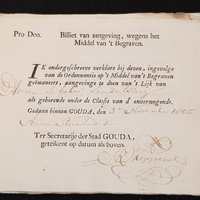 Pro Deo.
Billet van aangeving, wegens het
Middel van 't Begraven.
IK ondergeschreve verklare bij dezen, ingevolge
van de Ordonnantie op 't Middel van 't Begraven
geëmaneert, aangeving te doen van 't Lijk van
als gehorende onder de Classis van d' onvermogende.
Gedaan binnen GOUDA, den 3e November 1805
Ter Secretarije der Stad GOUDA,
geteikent op datum als boven.